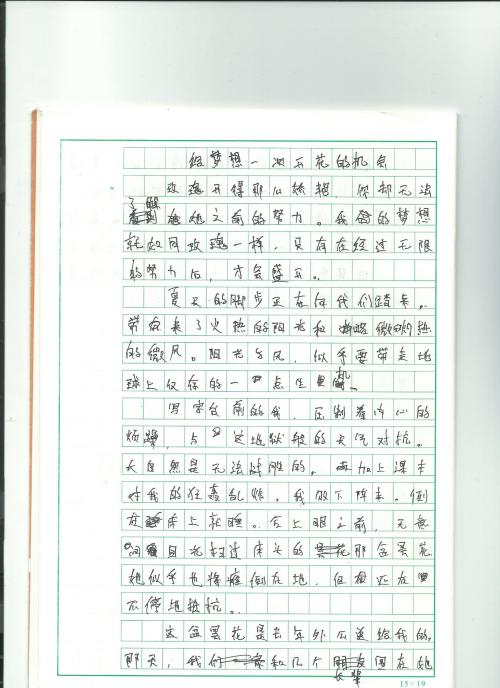 给梦想一次开花的机会
玫瑰开得那么娇艳，你却无法
了解
她之前的努力。我的梦想
就如同玫瑰一样，只有在经过无限
的努力后，才会盛开。
夏天的脚步正在向我们踏来。
带来了火热的阳光和灼热
的微风。阳光与风，似乎要带走地
球上仅存的一点生机。
写字台前的我，压制着内心的
烦躁，与这地狱般的天气对抗。
大自然是无法战胜的。再加上课本
对我的狂轰乱炸。我败下阵来。倒
在床上就睡。合上眼之前，无意
间目光扫过床头的那盆昙花
她似乎也将瘫倒在地，但根还在
不停地抵抗。
这盆昙花是去年外公送给我的。
那天，我们和几个围在她
长辈
15×19